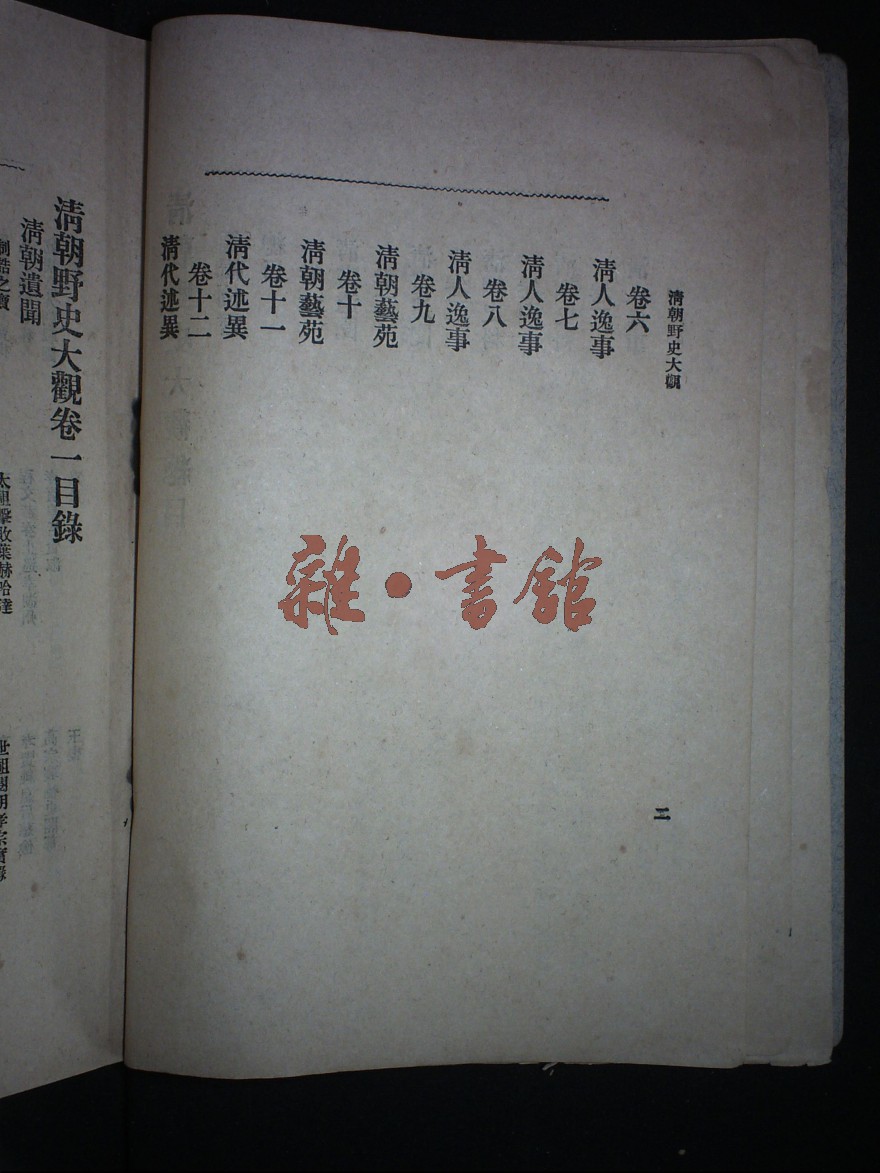 清朝野史大觀
卷六
清人逸事
卷七
清人逸事
卷八
清人逸事
卷九
清朝藝苑
卷十
清朝藝苑
卷十一
清代述異
卷十二
清代述異
二
雜・書館
清朝野史大觀卷一目錄
清朝遺聞
太祖擊敗葉赫哈達